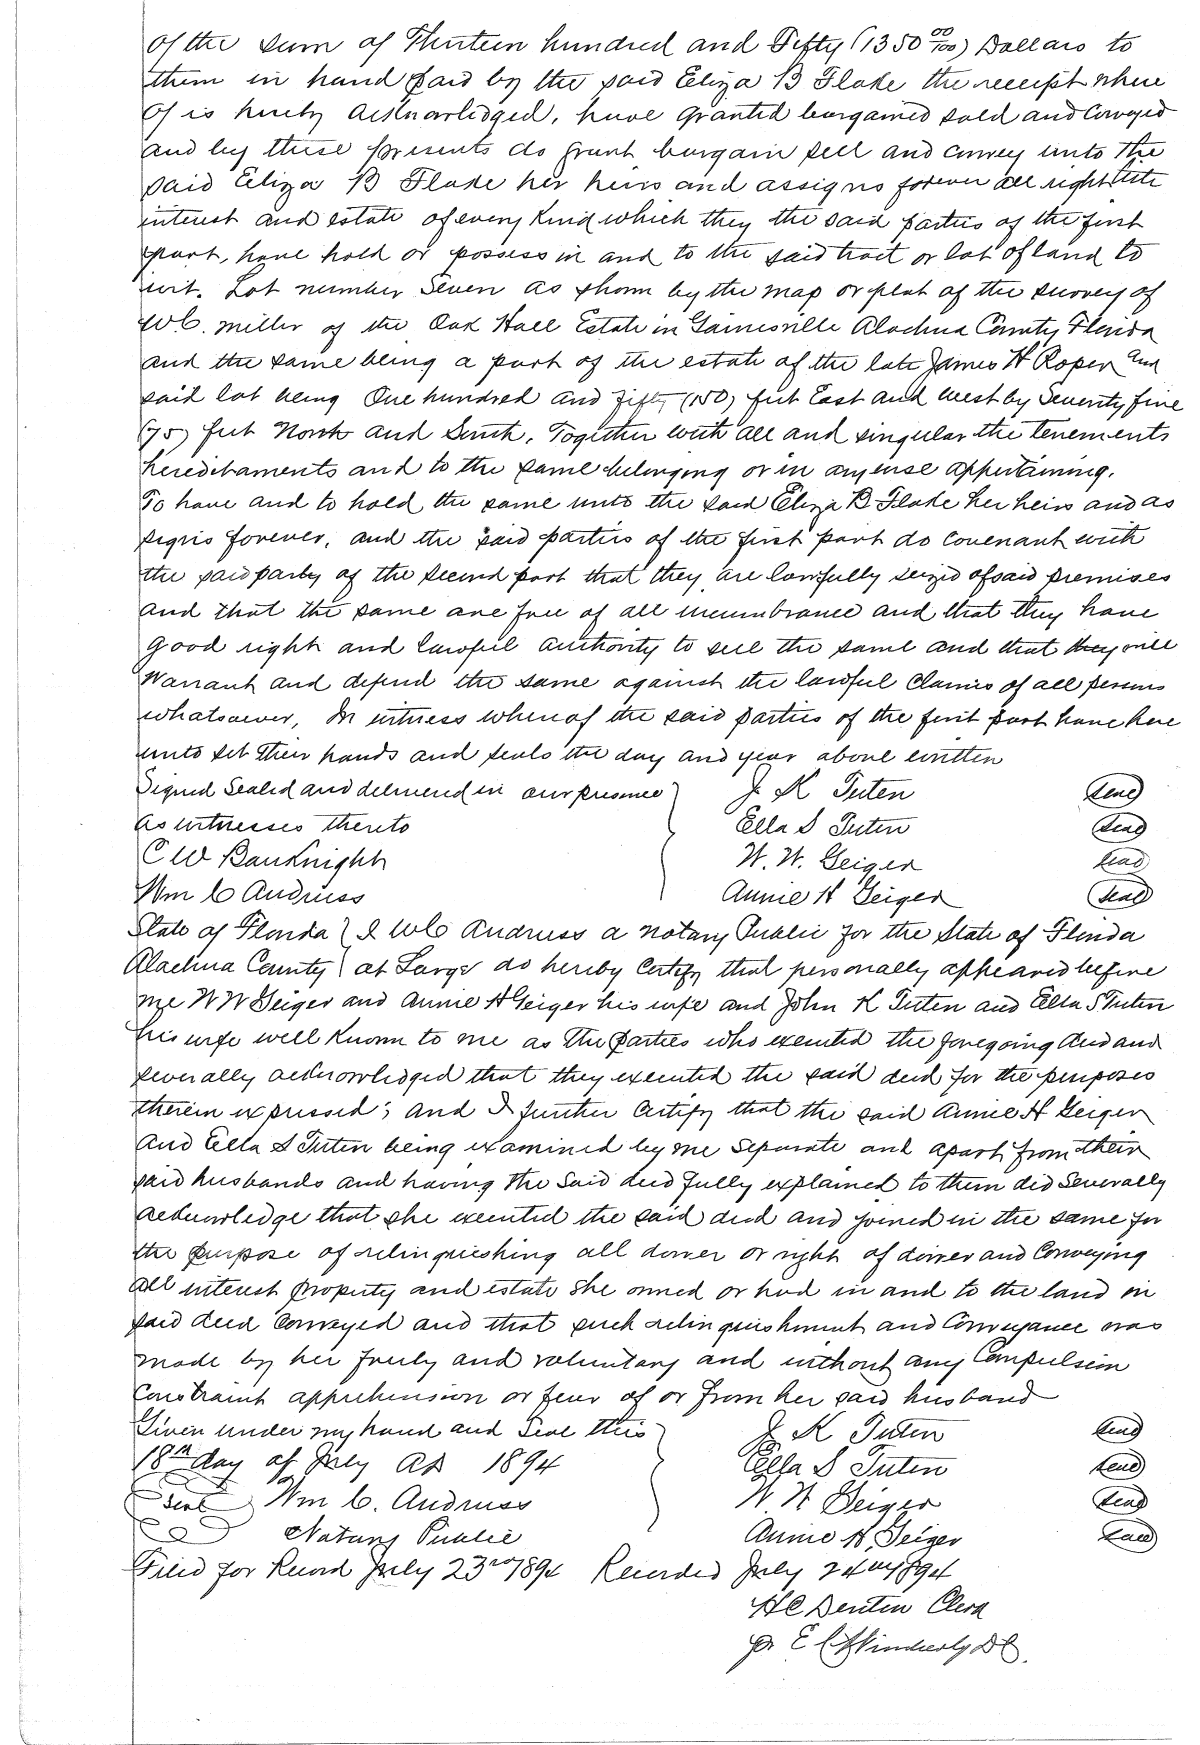 of the sum of Thirteen hundred and Fifty (1350 00/100) Dollars to
them in hand paid by the said Eliza B Flake the receipt where
of is hereby acknowledged, have granted bargained sold and conveyed
and by these presents do grant bargain sell and convey unto the
said Eliza B Flake her heirs and assigns forever all right title
interest and estate of every kind which they the said parties of the first
part, have hold or possess in and to the said tract or lot of land to
wit. Lot number Seven as shown by the map or plat of the survey of
W C. Miller of the Oak Hall Estate in Gainesville Alachua County Florida
and the same being a part of the estate of the late James H Roper and
said lot being One hundred and fifty (150) feet East and west by Seventy five
(75) feet North and South. Together with all and singular the tenements
hereditaments and to the same belonging or in anywise appertaining.
To have and to hold the same unto the said Eliza B Flake her heirs and as
signs forever, and the said parties of the first part do covenant with
the said party of the second part that they are lawfully seized of said premises
and that the same are free of all incumbrance and that they have
good right and lawful authority to sell the same and that they will
Warrant and defend the same against the lawful Claims of all persons
whatsoever, In witness whereof the said parties of the first part have here
unto set their hands and seals the day and year above written
Signed Sealed and delivered in our presence } J K Tuten Seal
as witnesses thereto Ella S Tuten Seal
C W Bauknight W. W. Geiger Seal
Wm C Andruss Annie H Geiger Seal
State of Florida } I W C Andruss a Notary Public for the State of Florida
Alachua County } at Large do hereby Certify that personally appeared before
me W W Geiger and Annie H Geiger his wife and John K Tuten and Ella S Tuten
his wife well known to me as the parties who executed the foregoing deed and
severally acknowledged that they executed the said deed for the purposes
therein expressed; and I further Certify that the said Annie H Geiger
and Ella S Tuten being examined by me separate and apart from their
said husbands and having the said deed fully explained to them did severally
acknowledge that she executed the said deed and joined in the same for
the purpose of relinquishing all dower or right of dower and Conveying
all interest property and estate she owned or had in and to the land in
said deed Conveyed and that such relinquishment and Conveyance was
made by her freely and voluntary and without any Compulsion
Constraint apprehension or fear of or from her said husband
Given under my hand and Seal this } J K Tuten Seal
18th day of July AD 1894 Ella S Tuten Seal
Seal Wm C. Andruss W W Geiger Seal
Notary Public Annie H. Geiger Seal
Filed for Record July 23rd 1894 Recorded July 24th 1894
H C Denton Clerk
pr E C Wimberly DC.